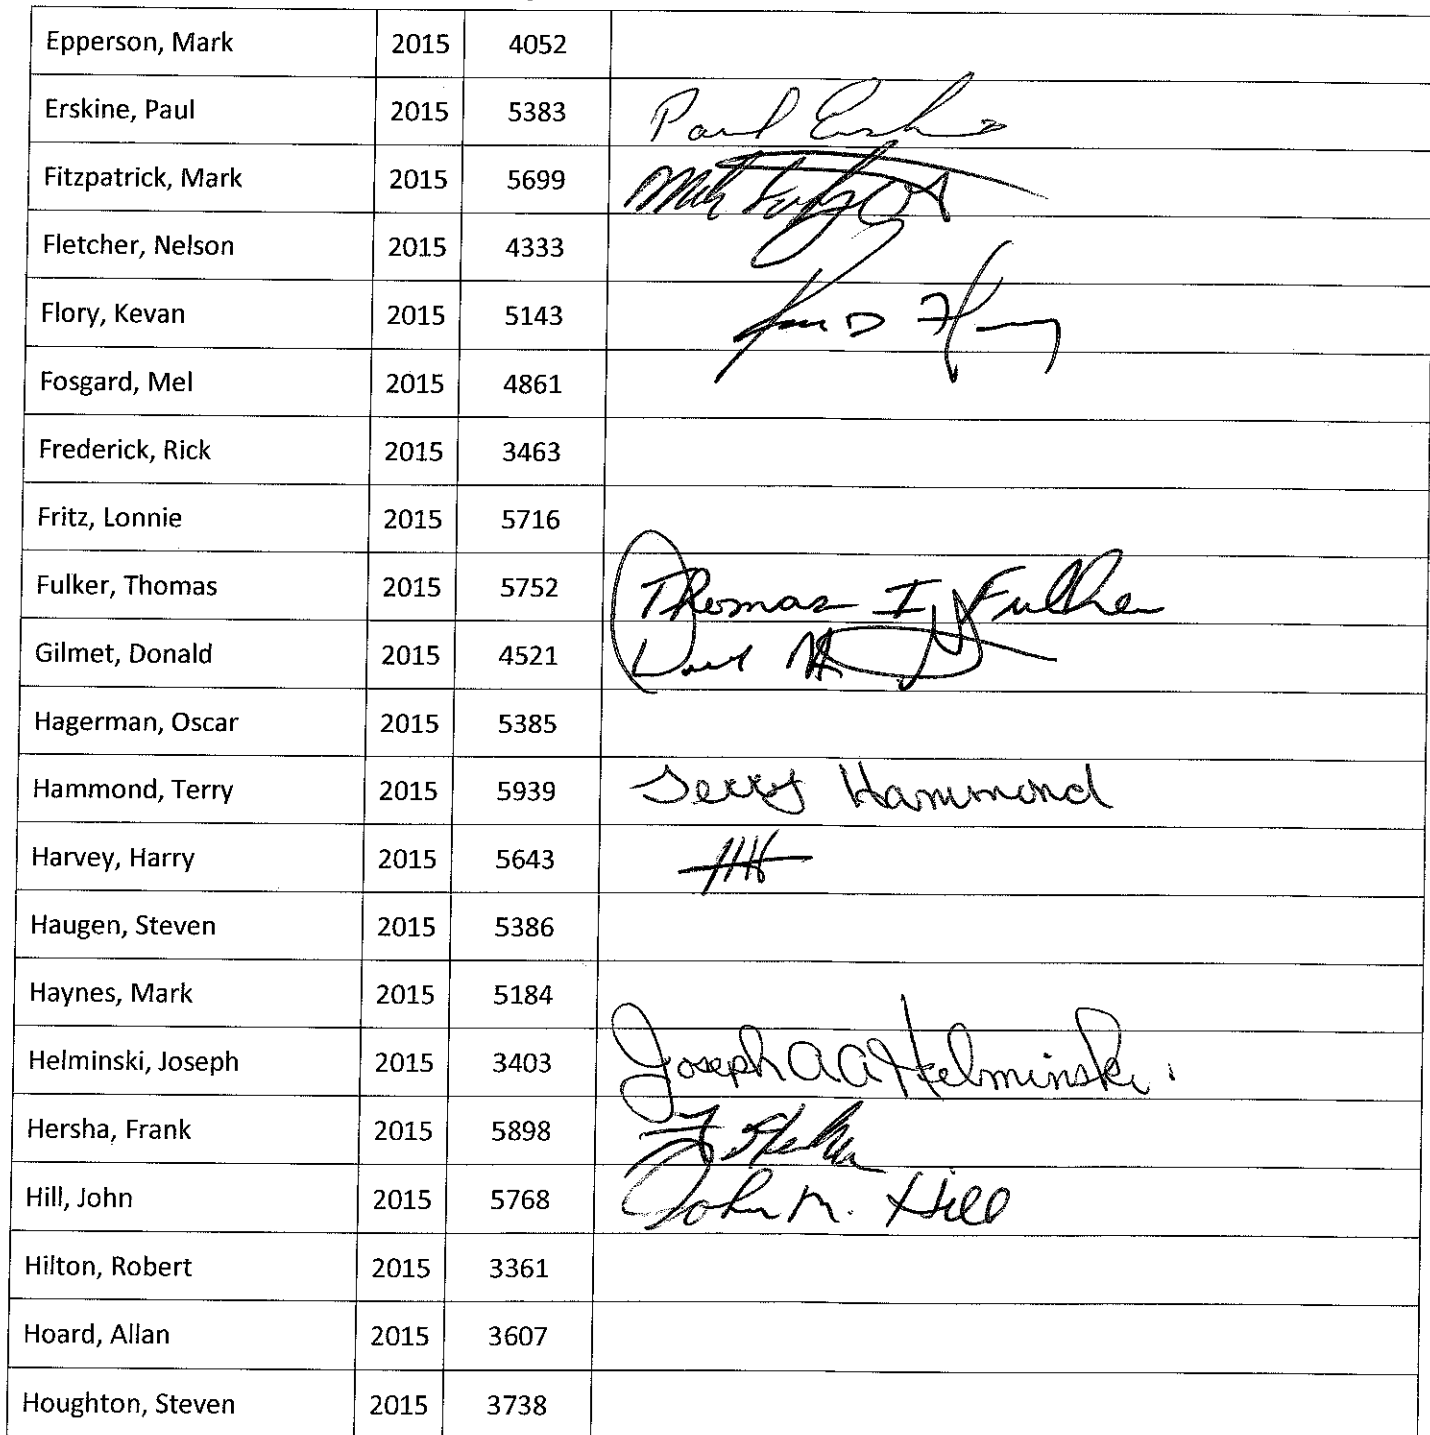 Epperson, Mark 2015 4052
Erskine, Paul 2015 5383 Paul
Fitzpatrick, Mark 2015 5699
Fletcher, Nelson 2015 4333
Flory, Kevan 2015 5143
Fosgard, Mel 2015 4861
Frederick, Rick 2015 3463
Fritz, Lonnie 2015 5716
Fulker, Thomas 2015 5752 Thomas I Fulker
Gilmet, Donald 2015 4521
Hagerman, Oscar 2015 5385
Hammond, Terry 2015 5939 Terry Hammond
Harvey, Harry 2015 5643 HH
Haugen, Steven 2015 5386
Haynes, Mark 2015 5184
Helminski, Joseph 2015 3403 Joseph A A Helminski.
Hersha, Frank 2015 5898
Hill, John 2015 5768 John M. Hill
Hilton, Robert 2015 3361
Hoard, Allan 2015 3607
Houghton, Steven 2015 3738